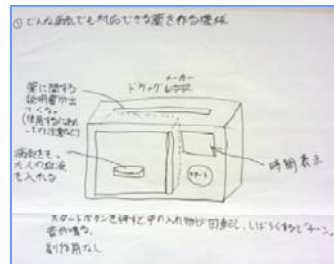 ① どんな病気でも対応できる薬を作る機械
メーカー
ドラッグレンジ
薬に関する
説明書が出
てくる。
(使用するにあた
っての注意など)
病気をもった
人の血液
を入れる
時間表示
スタート
スタートボタンを押すと中の入れ物が回転し、しばらくするとチーン。
音が鳴る。
副作用なし